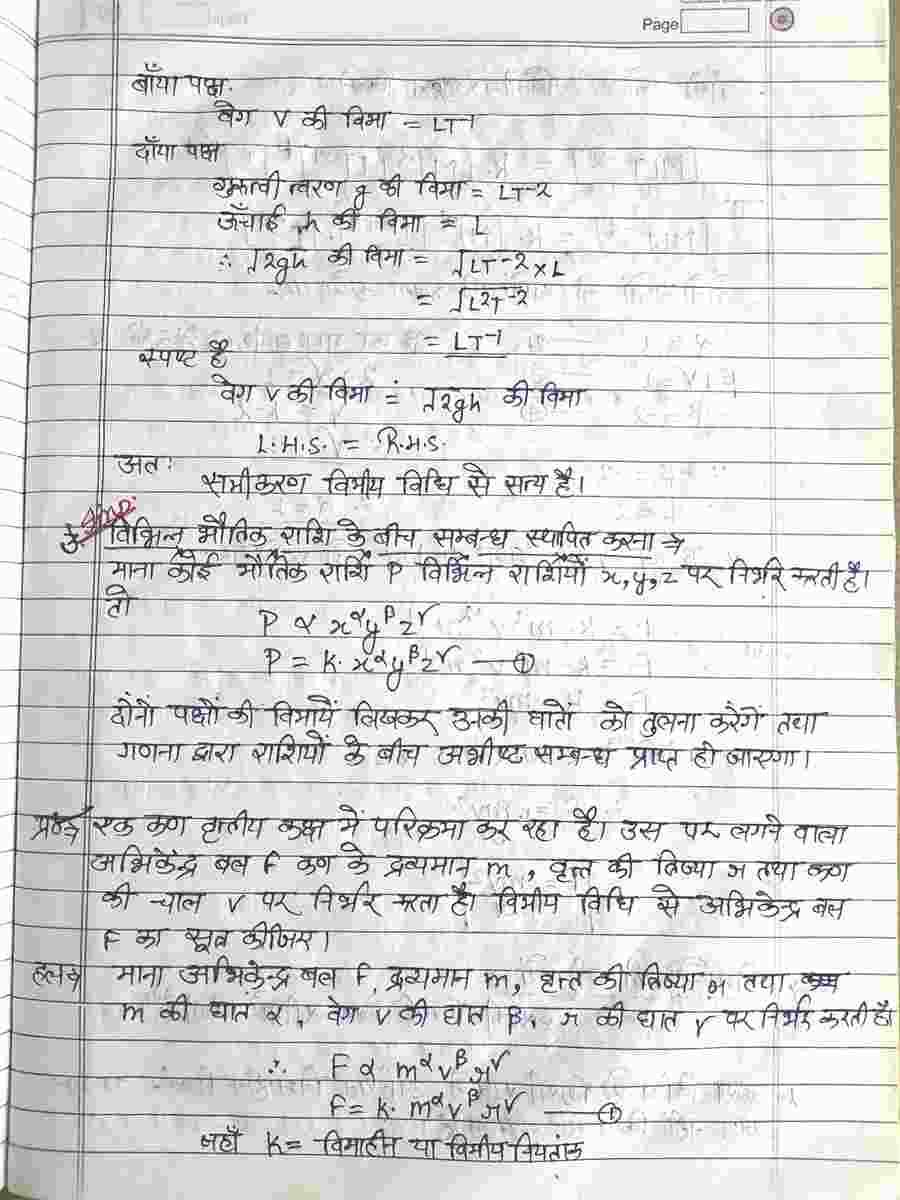 Page
बाँया पक्ष
वेग V की विमा = LT⁻¹
दाँया पक्ष
गुरुत्वी त्वरण g की विमा = LT⁻²
ऊँचाई h की विमा = L
∴ √2gh की विमा = √LT⁻² × L
= √L²T⁻²
= LT⁻¹
स्पष्ट है
वेग V की विमा = √2gh की विमा
L.H.S. = R.H.S.
अतः
समीकरण विमीय विधि से सत्य है।
Imp.
3. विभिन्न भौतिक राशि के बीच सम्बन्ध स्थापित करना ⇒
माना कोई भौतिक राशि P विभिन्न राशियों x, y, z पर निर्भर करती है।
तो
P ∝ x^α y^β z^γ
P = K. x^α y^β z^γ — ①
दोनों पक्षों की विमायें लिखकर उनकी घातों की तुलना करेगें तथा
गणना द्वारा राशियों के बीच अभीष्ट सम्बन्ध प्राप्त हो जाएगा।
प्रश्न⇒ एक कण वृत्तीय कक्ष में परिक्रमा कर रहा है। उस पर लगने वाला
अभिकेंद्र बल F कण के द्रव्यमान m, वृत्त की त्रिज्या r तथा कण
की चाल V पर निर्भर करता है। विमीय विधि से अभिकेन्द्र बल
F का सूत्र कीजिए।
हल⇒ माना अभिकेन्द्र बल F, द्रव्यमान m, वृत्त की त्रिज्या r तथा
m की घात α, वेग V की घात β, r की घात γ पर निर्भर करती है।
∴ F ∝ m^α v^β r^γ
F = K. m^α v^β r^γ — ①
जहाँ K = विमाहीन या विमीय नियतांक